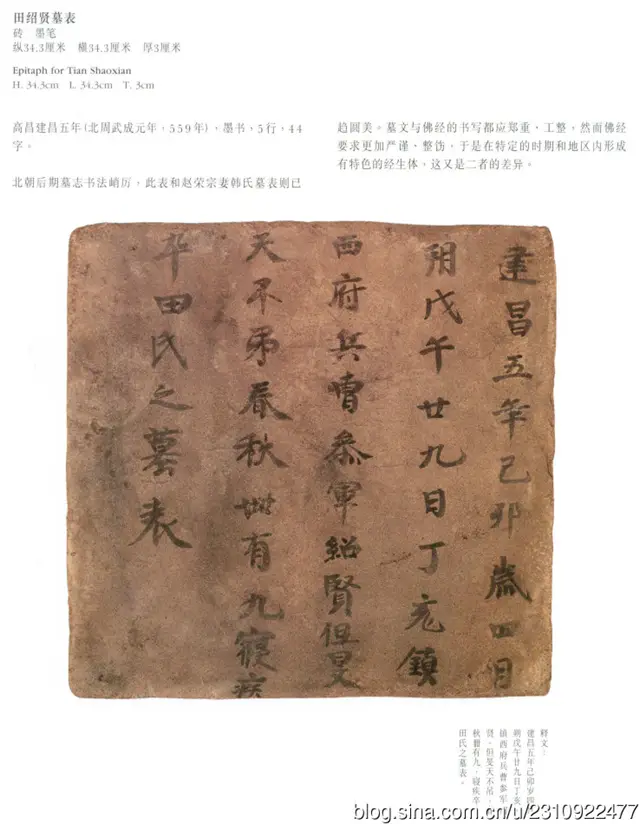 田绍贤墓表
砖　墨笔
纵34.3厘米　横34.3厘米　厚3厘米
Epitaph for Tian Shaoxian
H. 34.3cm　L. 34.3cm　T. 3cm
高昌建昌五年(北周武成元年，559年)，墨书，5行，44
字。
北朝后期墓志书法峭厉，此表和赵荣宗妻韩氏墓表则已
趋圆美。墓文与佛经的书写都应郑重、工整，然而佛经
要求更加严谨、整饬，于是在特定的时期和地区内形成
有特色的经生体，这又是二者的差异。
建昌五年己卯歲四月
朔戊午廿九日丁亥鎮
西府兵曹參軍紹賢但旻
天不弔春秋卌有九寢疾
卒田氏之墓表
释文：
建昌五年己卯岁四
朔戊午廿九日丁亥
镇西府兵曹参军
贤，但旻天不吊，
秋卌有九，寝疾卒
田氏之墓表。
blog.sina.com.cn/u/2310922477